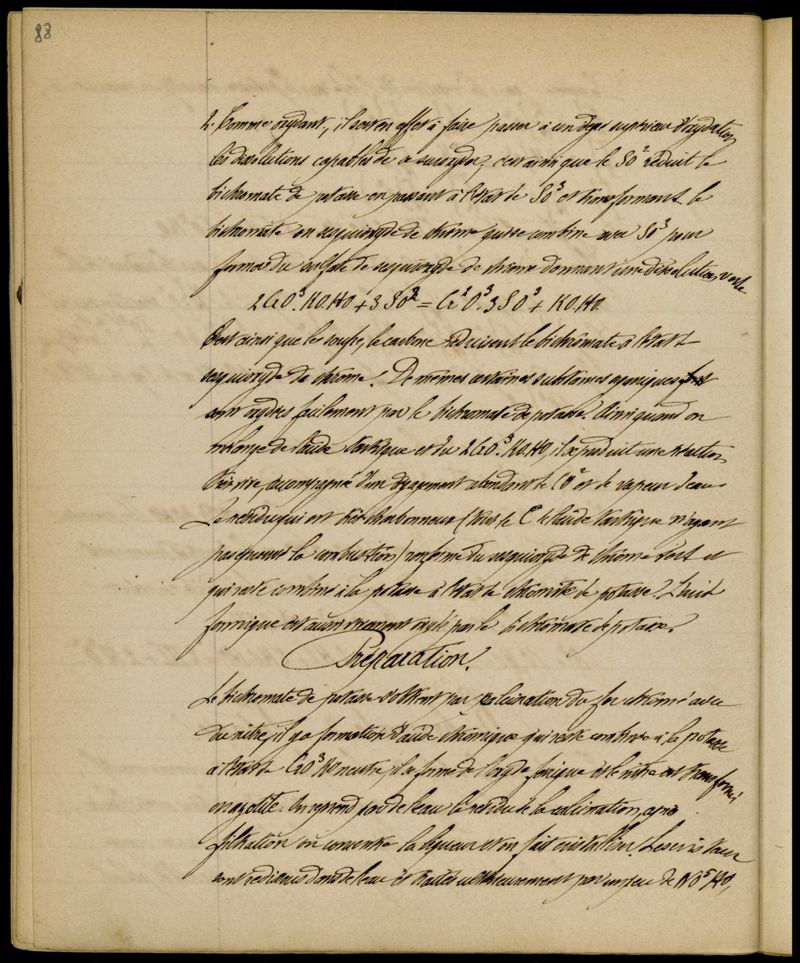 88
2. Comme oxydant, il sert en effet à faire passer à un degré supérieur d'oxydation
les dissolutions capables de se suroxyder; c'est ainsi que le SO² réduit le
bichromate de potasse en passant à l'état de SO³ et transformant le
bichromate en sesquioxyde de chrome qui se combine avec SO³ pour
former du sulfate de sesquioxyde de chrome donnant une dissolution verte
2CrO³.KO.HO + 3SO² = Cr²O³.3SO³ + KO.HO.
C'est ainsi que le soufre, le carbone réduisent le bichromate à l'état de
sesquioxyde de chrome. De mêmes certaines substances organiques
sont oxydées facilement par le bichromate de potasse. Ainsi quand on
mélange de l'acide tartrique et du 2CrO³.KO.HO, il se produit une réaction
très vive, accompagnée d'un dégagement abondant de CO² et de vapeur d'eau.
Le résidu qui est très charbonneux (tout le C de l'acide tartrique n'ayant
pas éprouvé la combustion) renferme du sesquioxyde de chrome vert et
qui reste combiné à la potasse à l'état de chromite de potasse. L'acide
formique est aussi vivement oxydé par le bichromate de potasse.
Préparation.
Le bichromate de potasse s'obtient par calcination du fer chromé avec
du nitre, il y a formation d'acide chromique qui reste combiné à la potasse
à l'état de CrO³ neutre, il se forme de l'oxyde ferrique et le nitre est transformé
en azotite. On reprend par de l'eau le résidu de la calcination, après
filtration on concentre la liqueur et on fait cristalliser. Les cristaux
sont redissous dans de l'eau et traités ultérieurement par un peu de NO⁵HO,